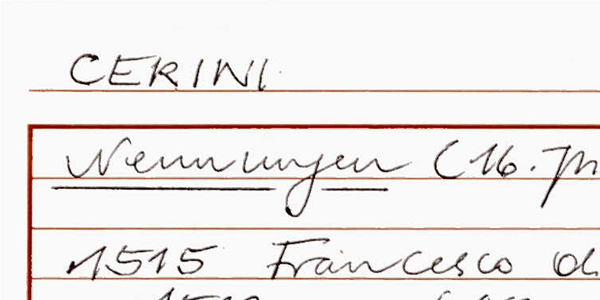 CERINI
Nennungen (16. Jh
1515 Francesco d